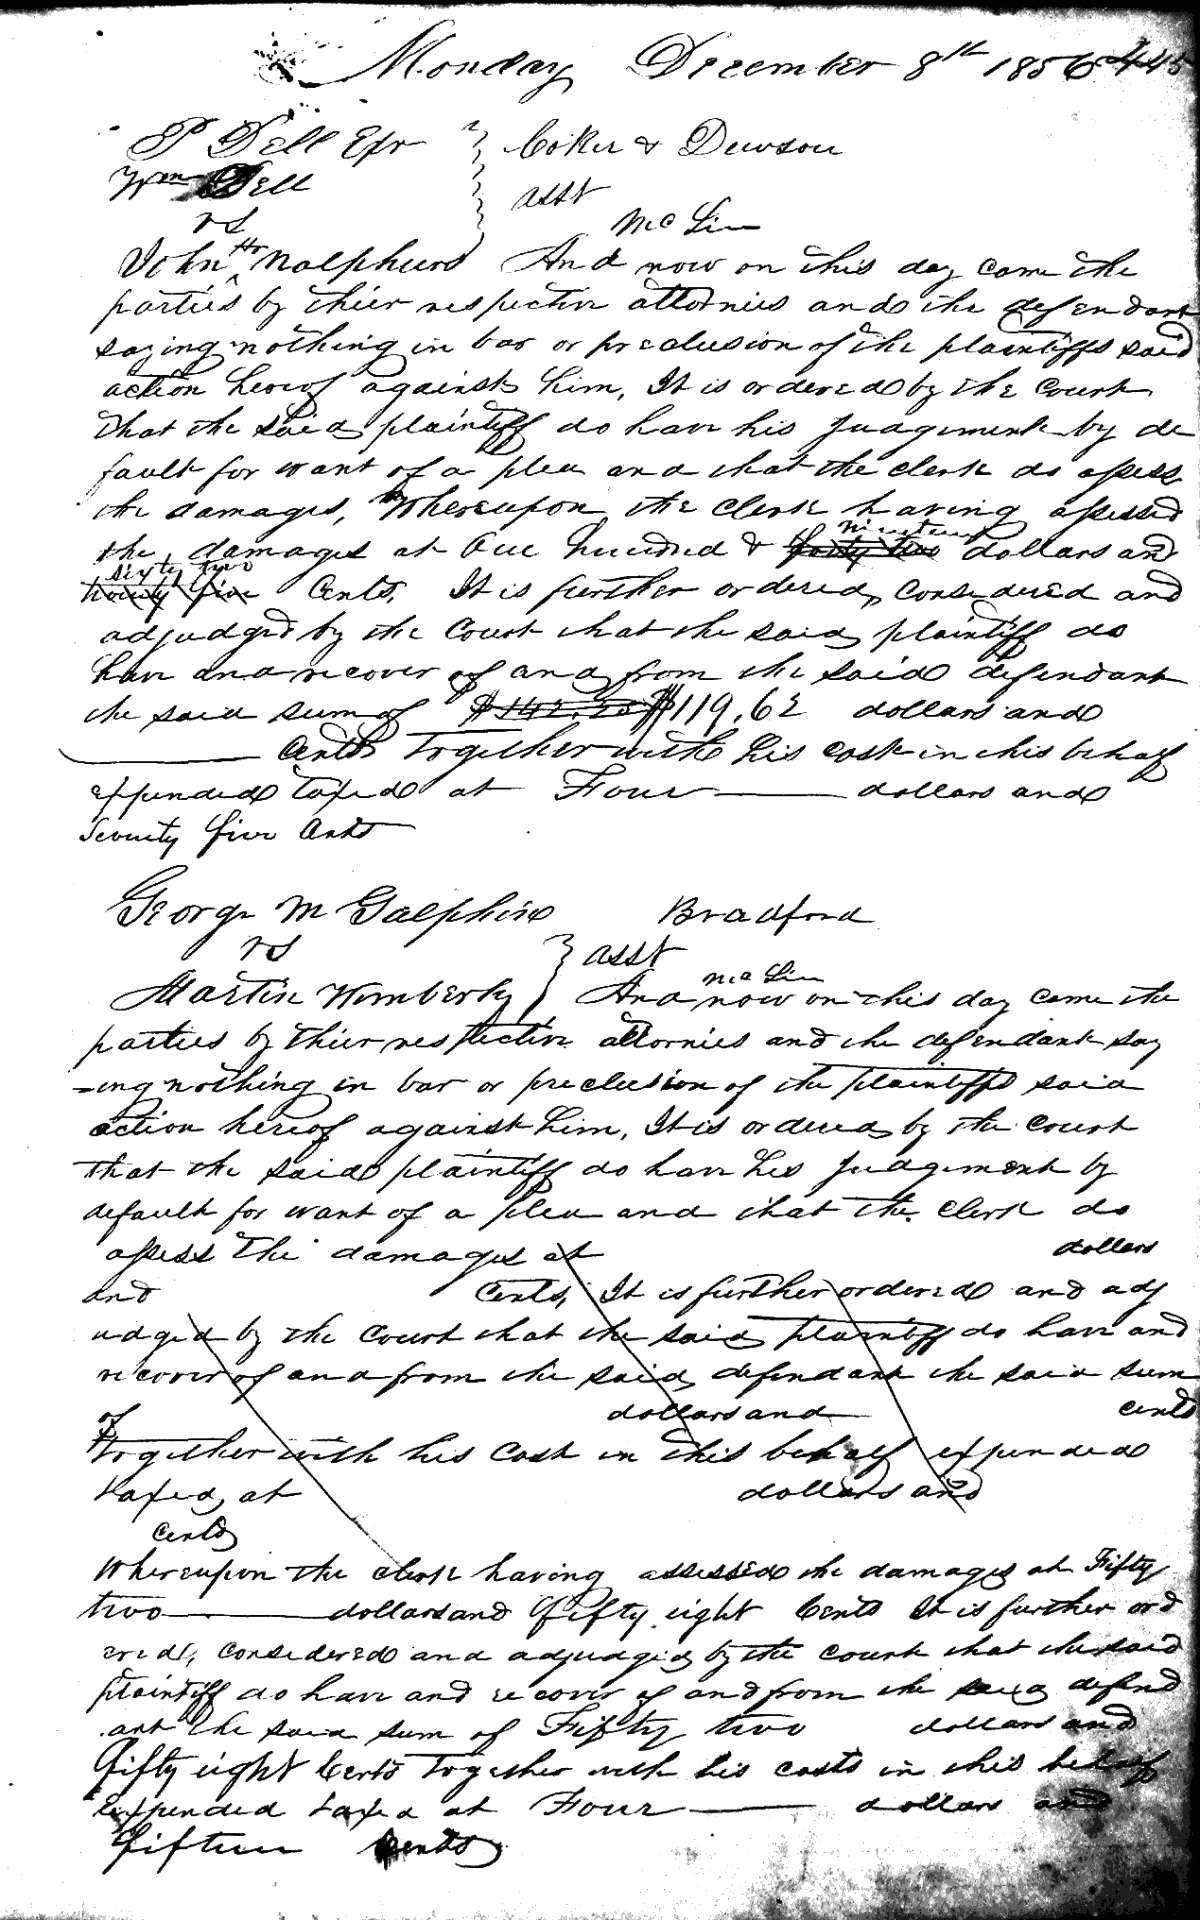 Monday December 8th 1856 445
P Dell Exr } Coker & Dawson
Wm Dell } asst
vs McLin
John Hr Nalphurs And now on this day came the
parties by thier respective attornies and the defendant
saying nothing in bar or preclusion of the plaintiffs said
action hereof against him, It is ordered by the court
that the said plaintiff do have his Judgement by de
fault for want of a plea and that the clerk do assess
the damages, Whereupon the clerk having assessed
the damages at One hundred & forty two nineteen dollars and
twenty five sixty two Cents, It is further ordered, considered and
adjudged by the Court that the said plaintiff do
have and recover of and from the said defendant
the said sum of $142.25 $119.62 dollars and
Cents Together with his cost in this behalf
expended taxed at Four dollars and
Seventy five cents
George M Galphin Bradford
vs } asst
McLin
Martin Wimberly } And now on this day came the
parties by thier respective attornies and the defendant say
-ing nothing in bar or preclusion of the plaintiffs said
action hereof against him, It is ordered by the court
that the said plaintiff do have his Judgement by
default for want of a plea and that the clerk do
assess the damages at dollars
and cents, It is further ordered and adj
udged by the court that the said plaintiff do have and
recover of and from the said defendant the said sum
of dollars and cents
Together with his cost in this behalf expended
taxed at dollars and
cents
Whereupon the clerk having assessed the damages at Fifty
two dollars and fifty eight Cents It is further ord
ered, considered and adjudged by the court that the said
plaintiff do have and recover of and from the said defend
ant the said sum of Fifty two dollars and
fifty eight Cents Together with his costs in this behalf
Expended taxed at Four dollars and
fifteen Cents